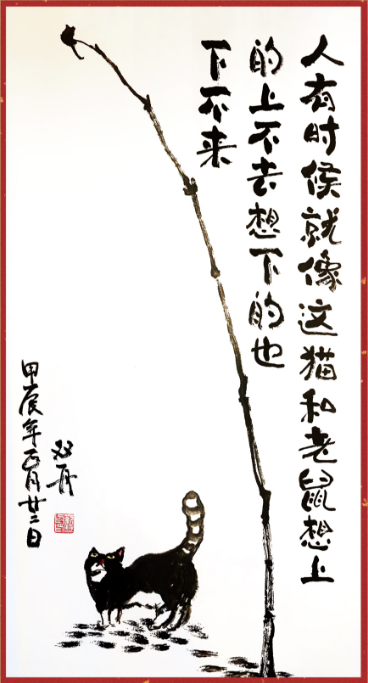 人有时候就像这猫和老鼠想上
的上不去想下的也
下不来
双舟
甲辰年正月廿二日